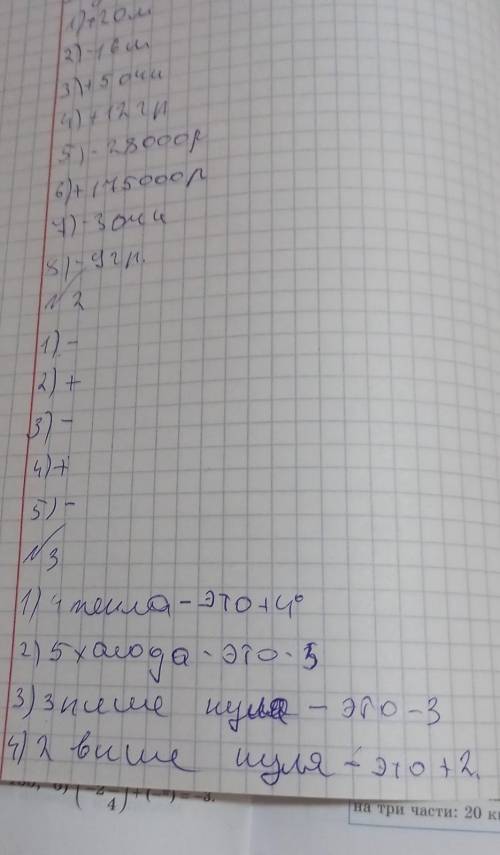 1) +20 м
2) -16 м
3) +5 очк
4) +12 гр
5) -28000р
6) +175000р
7) -3 очк
8) -9 гр.
№2
1) -
2) +
3) -
4) +
5) -
№3
1) 4 тепла - это +4°
2) 5 холода - это -5
3) 3 ниже нуля - это -3
4) 2 више нуля - это +2.
4) + (-) = -3.
на три части: 20 к